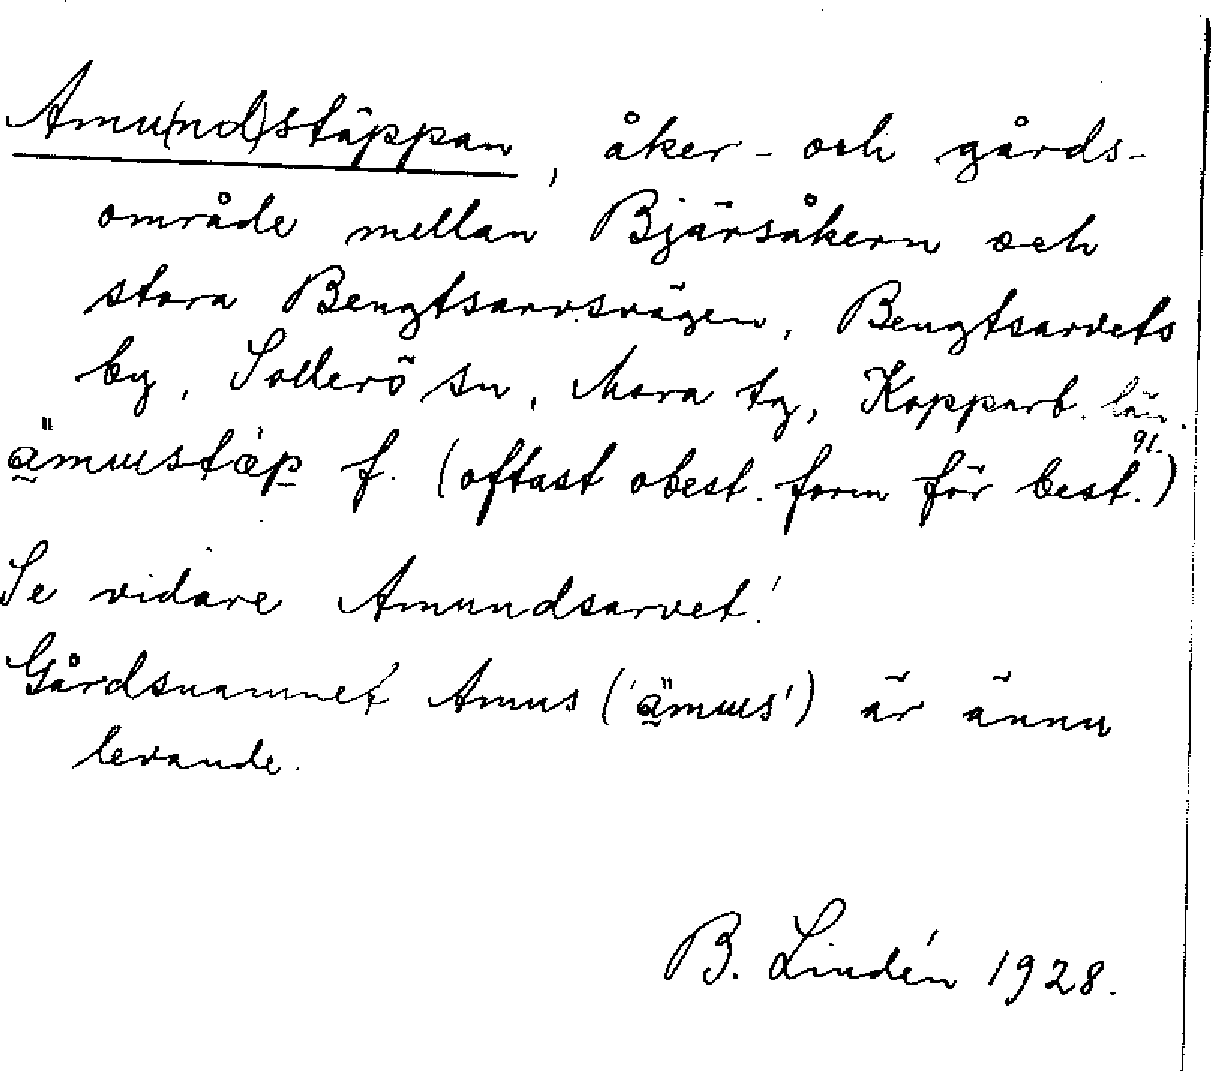 Amu(nd)stäppan, åker- och gårds-
område mellan Bjärsåkern och
stora Bengtsarvsvägen, Bengtsarvets
by, Sollerö sn, Mora tg, Kopparb. län.
ämɯstæp f. (oftast obest. form för best.)
Se vidare Amundsarvet!
Gårdsnamnet Amus ('ämɯs') är ännu
levande.
B. Lindén 1928.